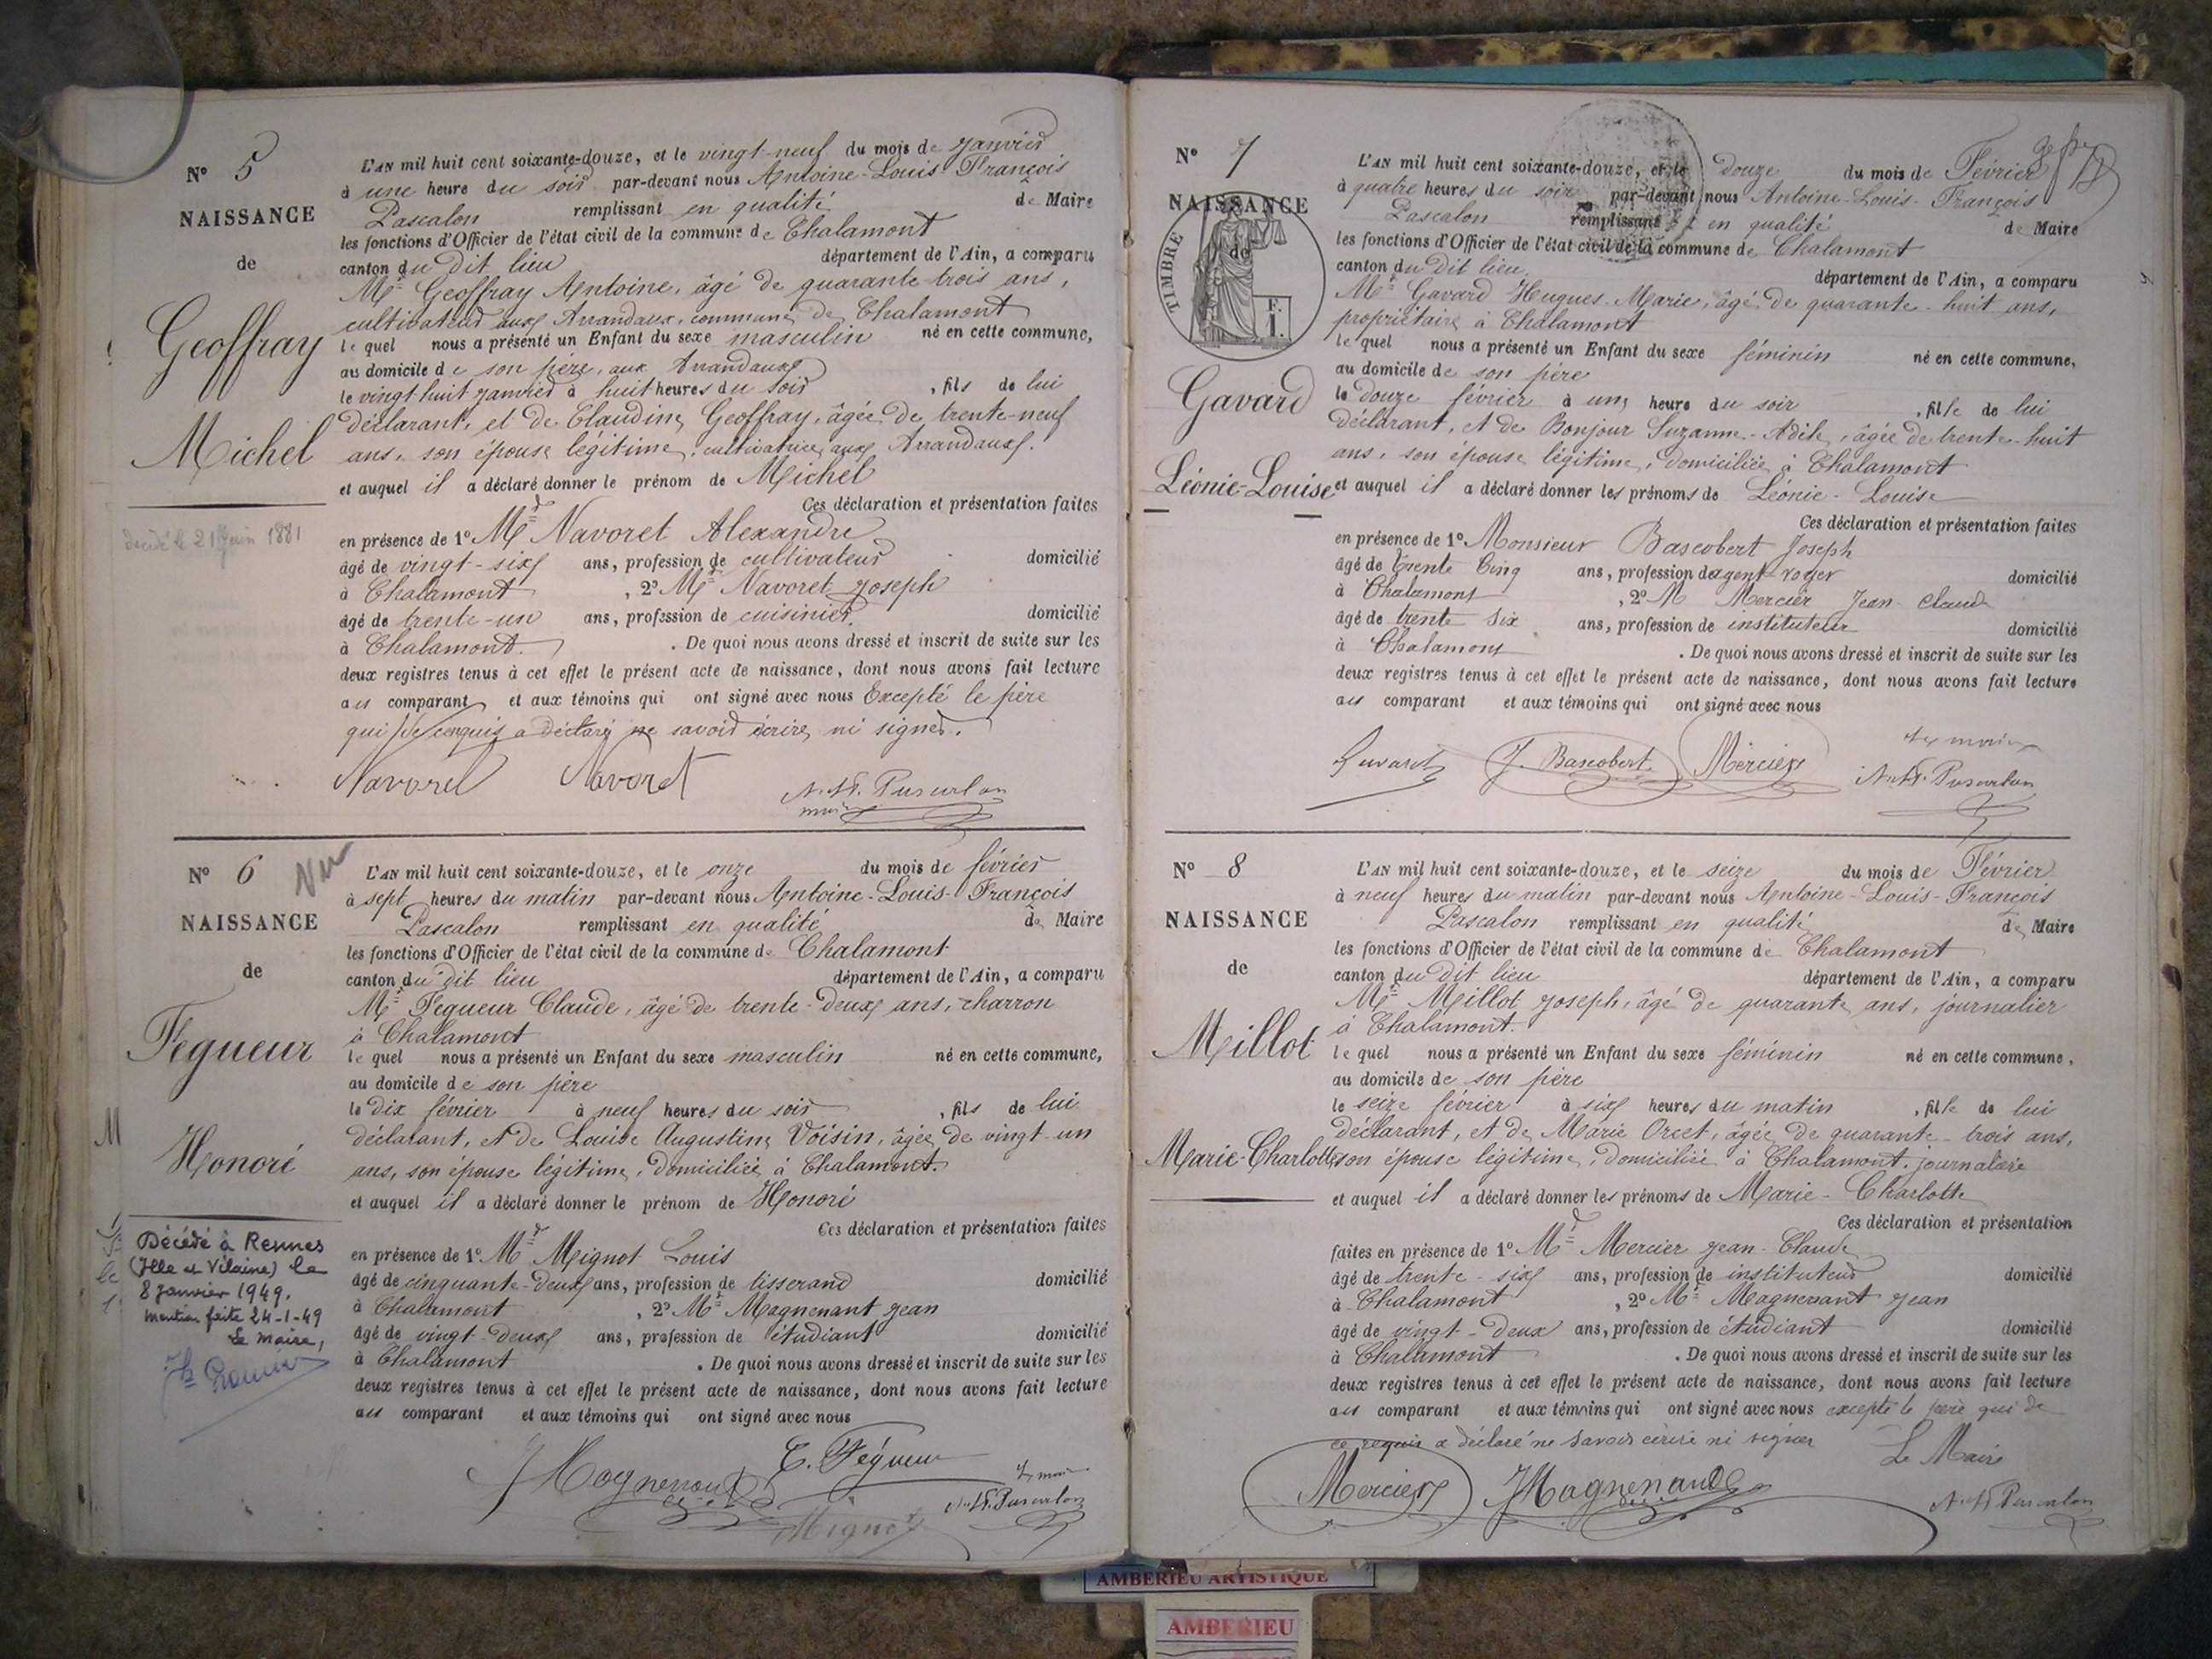 N° 5
NAISSANCE
de
Geoffray
Michel
décédé le 21 juin 1881
L'AN mil huit cent soixante-douze, et le vingt-neuf du mois de Janvier
à une heure du soir par-devant nous Antoine-Louis-François
Pascalon remplissant en qualité de Maire
les fonctions d'Officier de l'état civil de la commune de Chalamont
canton du dit lieu département de l'Ain, a comparu
Mr Geoffray Antoine, âgé de quarante trois ans,
cultivateur aux Arrandaux, commune de Chalamont
lequel nous a présenté un Enfant du sexe masculin né en cette commune,
au domicile de son père, aux Arrandaux
le vingt huit Janvier à huit heures du soir, fils de lui
déclarant, et de Claudine Geoffray, âgée de trente-neuf
ans, son épouse légitime, cultivatrice aux Arrandaux.
et auquel il a déclaré donner le prénom de Michel
Ces déclaration et présentation faites
en présence de 1° Mr Navoret Alexandre
âgé de vingt-six ans, profession de cultivateur domicilié
à Chalamont, 2° Mr Navoret Joseph
âgé de trente-un ans, profession de cuisinier, domicilié
à Chalamont. De quoi nous avons dressé et inscrit de suite sur les
deux registres tenus à cet effet le présent acte de naissance, dont nous avons fait lecture
au comparant et aux témoins qui ont signé avec nous Excepté le père
qui de ce requis a déclaré ne savoir écrire, ni signer.
Navoret Navoret A. L. F. Pascalon
maire
N° 6
NAISSANCE
de
Fegueur
Honoré
Décédé à Rennes
(Ille et Vilaine) le
8 Janvier 1949.
Mention faite 24-1-49
Le Maire,
L'AN mil huit cent soixante-douze, et le onze du mois de février
à sept heures du matin par-devant nous Antoine-Louis-François
Pascalon remplissant en qualité de Maire
les fonctions d'Officier de l'état civil de la commune de Chalamont
canton du dit lieu département de l'Ain, a comparu
Mr Fegueur Claude, âgé de trente-deux ans, charron
à Chalamont
lequel nous a présenté un Enfant du sexe masculin né en cette commune,
au domicile de son père
le dix février à neuf heures du soir, fils de lui
déclarant, et de Louise Augustine Voisin, âgée de vingt-un
ans, son épouse légitime, domiciliée à Chalamont.
et auquel il a déclaré donner le prénom de Honoré
Ces déclaration et présentation faites
en présence de 1° Mr Mignot Louis
âgé de cinquante-deux ans, profession de tisserand domicilié
à Chalamont, 2° Mr Magnenant Jean
âgé de vingt-deux ans, profession de étudiant domicilié
à Chalamont. De quoi nous avons dressé et inscrit de suite sur les
deux registres tenus à cet effet le présent acte de naissance, dont nous avons fait lecture
au comparant et aux témoins qui ont signé avec nous
J Magnenant C. Fégueur Le maire
Mignot A. L. F. Pascalon
N° 7
NAISSANCE
de
TIMBRE
Gavard
Léonie-Louise
L'AN mil huit cent soixante-douze, et le douze du mois de Février
à quatre heures du soir par-devant nous Antoine-Louis-François
Pascalon remplissant en qualité de Maire
les fonctions d'Officier de l'état civil de la commune de Chalamont
canton du dit lieu département de l'Ain, a comparu
Mr Gavard Hugues-Marie, âgé de quarante-huit ans,
propriétaire à Chalamont
lequel nous a présenté un Enfant du sexe féminin né en cette commune,
au domicile de son père
le douze février à une heure du soir, fille de lui
déclarant, et de Bonjour Suzanne-Adèle, âgée de trente-huit
ans, son épouse légitime, domiciliée à Chalamont
et auquel il a déclaré donner les prénoms de Léonie-Louise
Ces déclaration et présentation faites
en présence de 1° Monsieur Bascobert Joseph
âgé de trente Cinq ans, profession de agent-voyer domicilié
à Chalamont, 2° M Mercier Jean-Claude
âgé de trente Six ans, profession de instituteur domicilié
à Chalamont. De quoi nous avons dressé et inscrit de suite sur les
deux registres tenus à cet effet le présent acte de naissance, dont nous avons fait lecture
au comparant et aux témoins qui ont signé avec nous
Le maire
Gavard J. Bascobert Mercier A. L. F. Pascalon
N° 8
NAISSANCE
de
Millot
Marie-Charlotte
L'AN mil huit cent soixante-douze, et le seize du mois de Février
à neuf heures du matin par-devant nous Antoine-Louis-François
Pascalon remplissant en qualité de Maire
les fonctions d'Officier de l'état civil de la commune de Chalamont
canton du dit lieu département de l'Ain, a comparu
Mr Millot Joseph, âgé de quarante ans, journalier
à Chalamont.
lequel nous a présenté un Enfant du sexe féminin né en cette commune,
au domicile de son père
le seize février à six heures du matin, fille de lui
déclarant, et de Marie Orcet, âgée de quarante-trois ans,
son épouse légitime, domiciliée à Chalamont, journalière
et auquel il a déclaré donner les prénoms de Marie-Charlotte
Ces déclaration et présentation
faites en présence de 1° Mr Mercier Jean-Claude
âgé de trente-six ans, profession de instituteur domicilié
à Chalamont, 2° Mr Magnenant Jean
âgé de vingt-deux ans, profession de étudiant domicilié
à Chalamont. De quoi nous avons dressé et inscrit de suite sur les
deux registres tenus à cet effet le présent acte de naissance, dont nous avons fait lecture
au comparant et aux témoins qui ont signé avec nous excepté le père qui de
ce requis a déclaré ne savoir écrire ni signer Le Maire
Mercier J Magnenant A. L. F. Pascalon
AMBERIEU ARTISTIQUE
AMBERIEU